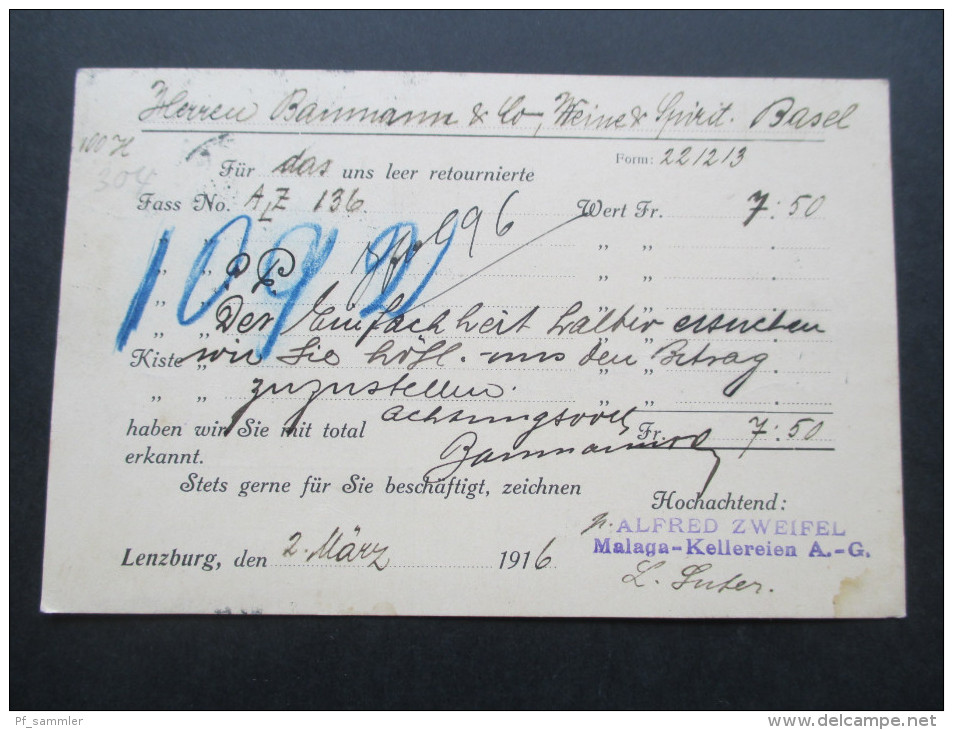 Herren Baumann & Co, Weine & Spirit. Basel
100 H
304
Form: 221213
Für das uns leer retournierte
Fass No. AZ 136 Wert Fr. 7:50
996
1092
p.p.
Der Einfachheit halber ersuchen
Kiste „ wir Sie höfl. uns den Betrag
zuzustellen.
achtungsvoll
haben wir Sie mit total Fr. 7:50
Baumann
erkannt.
Stets gerne für Sie beschäftigt, zeichnen
Hochachtend:
p. ALFRED ZWEIFEL
Malaga-Kellereien A.-G.
Lenzburg, den 2. März 1916
L. Suter.
Pf_sammler
www.delcampe.net